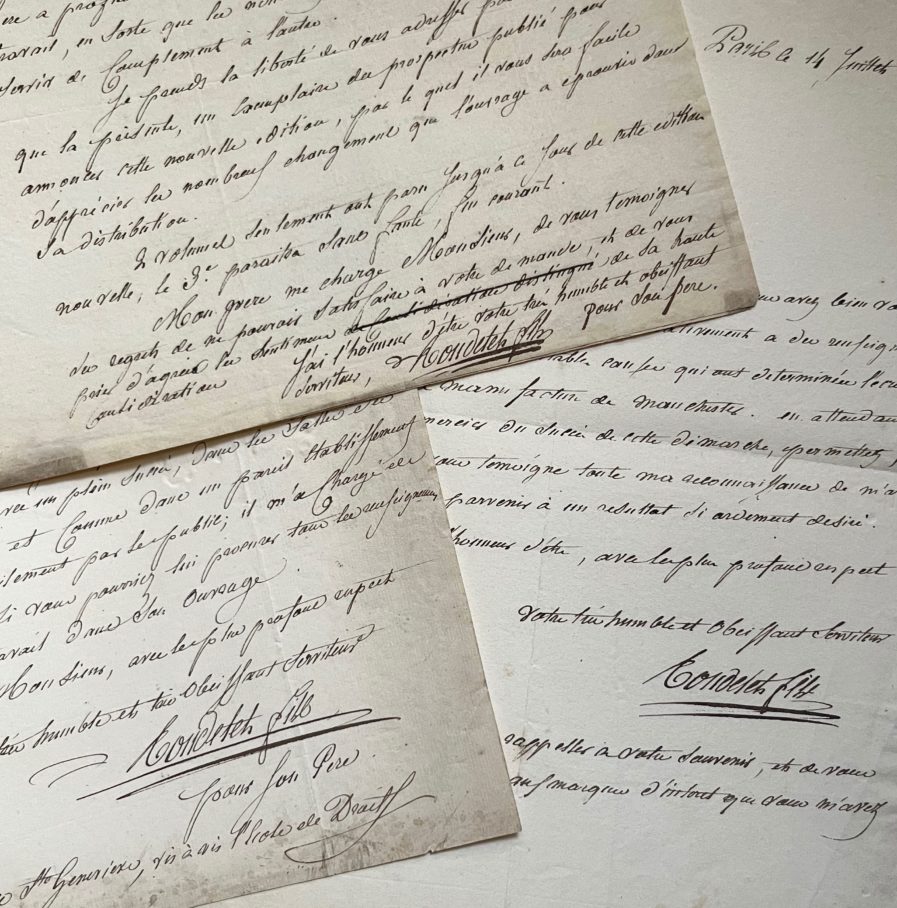 travail, en sorte que les
servir de Complement à l'autre.
Je prends la liberté de vous adresser
que la présente, un Exemplaire du prospectus publié pour
annoncer cette nouvelle edition, par le quel il vous sera facile
d'apprécier les nombreux changement que l'ouvrage a éprouvé dans
sa distribution.
2 volumes seulement ont paru jusqu'à ce jour de cette edition
nouvelle, le 3.e paraitra sans faute, fin courant.
Mon pere me charge Monsieur, de vous temoigner
du regrets de ne pouvoir satisfaire à votre demande, et de vous
prier d'agréer les sentimens de la haute
consideration
J'ai l'honneur d'être votre très humble et obéissant
serviteur, Rondelet fils pour son pere.
Paris le 14 Juillet
avez bien
causes qui ont determinée
manufacture de Manchester. en attendant
du succès de cette démarche, permettez,
temoigne toute ma reconnaissance de m'a
parvenir à un resultat si ardement desiré.
l'honneur d'être, avec le plus profond respect
Votre très humble et Obéissant Serviteur
Rondelet fils
rappeller à votre souvenir, et de vous
marques d'intérêt que vous m'avez
un plein succès, dans les salles
et comme dans un pareil établissement
par le public; il m'a chargé de
si vous pourriez lui procurer tous les renseignemens
dans son ouvrage.
Monsieur, avec le plus profond respect
très humble et très Obéissant Serviteur
Rondelet fils
pour son Pere.
Ste Genevieve, vis à vis l'Ecole de Droit